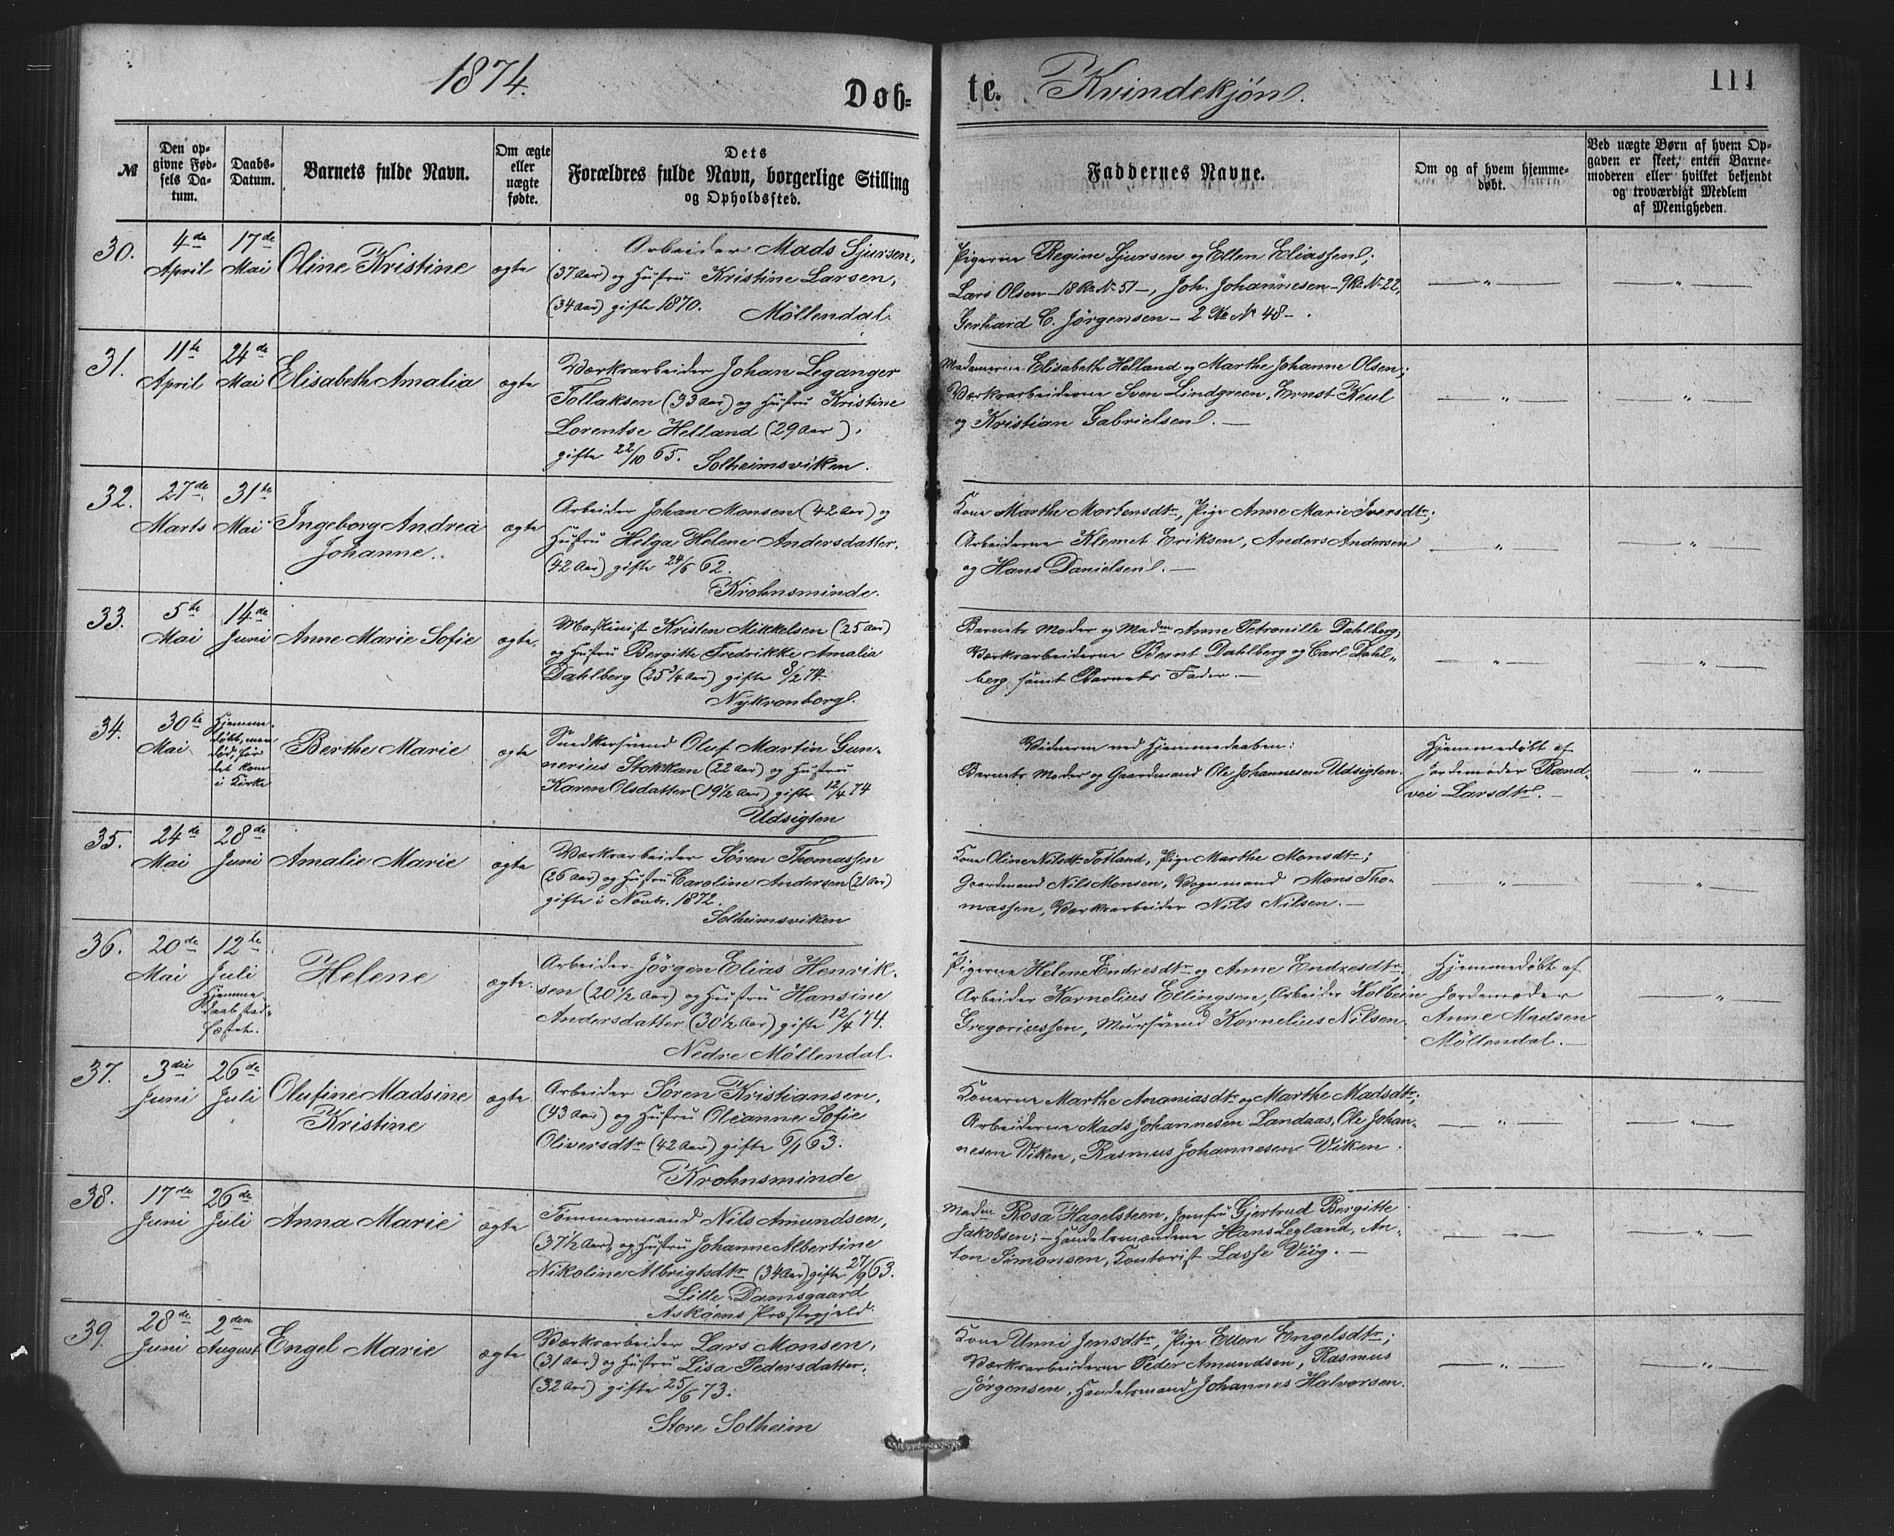 1874.
Døb-
te.
Kvindekjøn.
111
№
Den opgivne Fødsels Datum.
Daabs-Datum.
Barnets fulde Navn.
Om ægte eller uægte fødte.
Dets
Forældres fulde Navn, borgerlige Stilling
og Opholdssted.
Faddernes Navne.
Om og af hvem hjemmedøbt.
Ved uægte Børn af hvem Opgaven er skeet, enten Barnemoderen eller hvilket bekjendt og troværdigt Medlem af Menigheden.
30. 4de April 17de Mai Oline Kristine ægte
Arbeider Mads Sjursen,
(37 Aar) og Hustru Kristine Larsen,
(34 Aar) gifte 1870. Möllendal.
Pigerne Regine Sjursen og Ellen Eliassen;
Lars Olsen - 18 Rk. № 51 -, Joh. Johannesen - 9 Rk. № 22,
Gerhard C. Jörgensen - 2 Rk № 48 - .
— " — — " —
31. 11te April 24de Mai Elisabeth Amalia ægte
Værksarbeider Johan Leganger
Tollaksen (33 Aar) og Hustru Kristine
Lorentse Helland (29 Aar),
gifte 22/10 65. Solheimsviken.
Madamerne Elisabeth Helland og Marthe Johanne Olsen;
Værksarbeiderne Sven Lindgreen, Ernst Keul
og Kristian Gabrielsen. —
— " — — " —
32. 27de Marts 31te Mai Ingeborg Andrea
Johanne. ægte
Arbeider Johan Monsen (42 Aar) og
Hustru Helga Helene Andersdatter,
(42 Aar) gifte 24/6 62.
Krohnsminde.
Kone Marthe Mortensdtr, Pige Anne Marie Iversdtr;
Arbeiderne Klemet Eriksen, Anders Andersen
og Hans Danielsen. —
— " — — " —
33. 5te Mai 14de Juni Anne Marie Sofie ægte
Maskinist Kristen Mikkelsen (25 Aar)
og Hustru Bergitte Fredrikke Amalia
Dahlberg (25 3/4 Aar) gifte 8/2 74.
Nykronborg.
Barnets Moder og Madm Anne Petronille Dahlberg,
Værksarbeiderne Bernt Dahlberg og Carl Dahl-
berg samt Barnets Fader. —
— " — — " —
34. 30te Mai Hjemme-
døbt, men
død, før
det kom
i Kirke Berthe Marie ægte
Snedkersvend Oluf Martin Gun-
nerius Stokkan (22 Aar) og Hustru
Karen Olsdatter (19 1/2 Aar) gifte 12/4 74
Udsigten
Vidnerne ved Hjemmedaaben:
Barnets Moder og Gaardmand Ole Johannesen Udsigten.
Hjemmedøbt af
Jordemoder Rand-
vei Larsdtr. —
— " —
35. 24de Mai 28de Juni Amalie Marie ægte
Værksarbeider Søren Thomassen
(26 Aar) og Hustru Caroline Andersen (21 Aar)
gifte i Novbr. 1872.
Solheimsviken
Kone Oline Nilsdtr Totland, Pige Marthe Monsdtr;
Gaardmand Nils Monsen, Vognmand Mons Tho-
massen, Værksarbeider Nils Nilsen. —
— " — — " —
36. 20de Mai 12te Juli
Hjemme-
daab stad-
fæstet. Helene ægte
Arbeider Jörgen Elias Henrik-
sen (20 1/2 Aar) og Hustru Hansine
Andersdatter (30 1/2 Aar) gifte 12/4 74.
Nedre Möllendal.
Pigerne Helene Endresdtr og Anne Endresdtr,
Arbeider Kornelius Ellingsen, Arbeider Kolbein
Gregoriussen, Mursvend Kornelius Nilsen.
Hjemmedøbt af
Jordemoder
Anne Madsen
Möllendal. —
— " —
37. 3die Juni 26de Juli Olufine Madsine
Kristine ægte
Arbeider Søren Kristiansen,
(43 Aar) og Hustru Oleanne Sofie
Oliversdtr (42 Aar) gifte 6/1 63.
Krohnsminde
Konerne Marthe Ananiasdtr og Marthe Madsdtr;
Arbeiderne Mads Johannesen Landaas, Ole Johan-
nesen Viken, Rasmus Johannesen Viken.
— " — — " —
38. 17de Juni 26de Juli Anna Marie ægte
Tömmermand Nils Amundsen,
(37 1/2 Aar) og Hustru Johanne Albertine
Nikoline Albrigtsdtr (34 Aar) gifte 27/9 63.
Lille-Damsgaard
Askøens Præstegjeld.
Madm Rosa Hagelsteen, Jomfru Gjertrud Bergitte
Jakobsen; - Handelsmændene Hans Legland, An-
ton Simonsen, Kontorist Lasse Viig. —
— " — — " —
39. 28de Juni 2den August Engel Marie ægte
Værksarbeider Lars Monsen,
(31 Aar) og Hustru Lisa Pedersdatter,
(32 Aar) gifte 25/6 73.
Store Solheim
Kone Unni Jensdtr, Pige Ellen Engelsdtr;
Værksarbeiderne Peder Amundsen, Rasmus
Jörgensen, Handelsmand Johannes Halvorsen.
— " — — " —